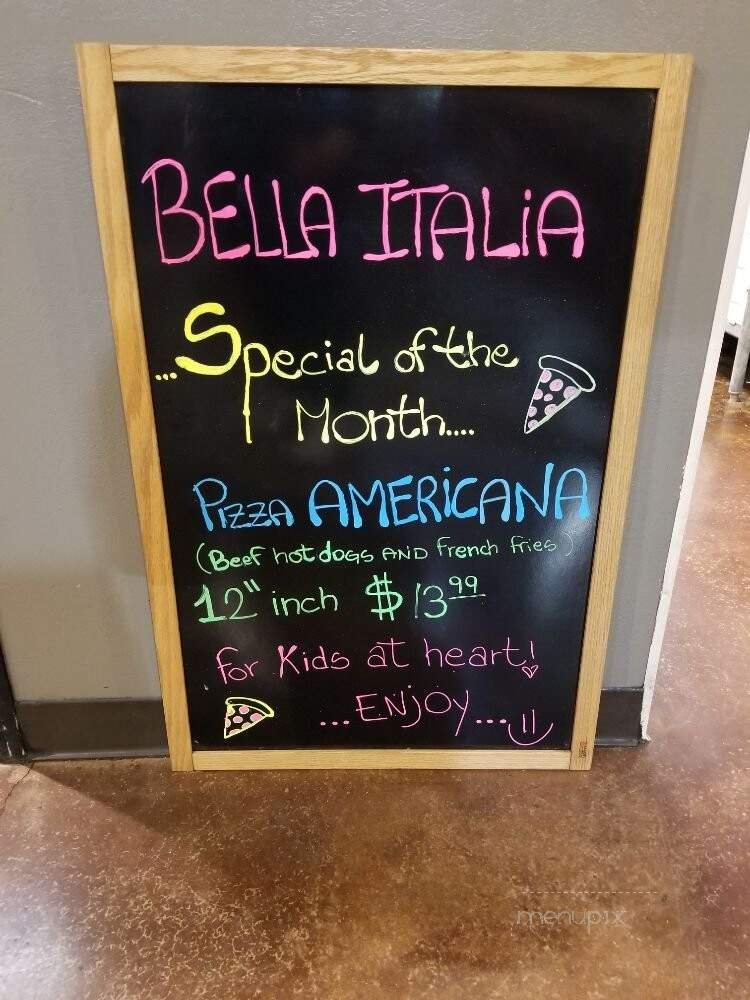 BELLA ITALiA
...Special of the
Month....
Pizza AMERiCANA
(Beef hot dogs AND french fries)
12" inch $13.99
for Kids at heart!
...ENjOY...
menupix